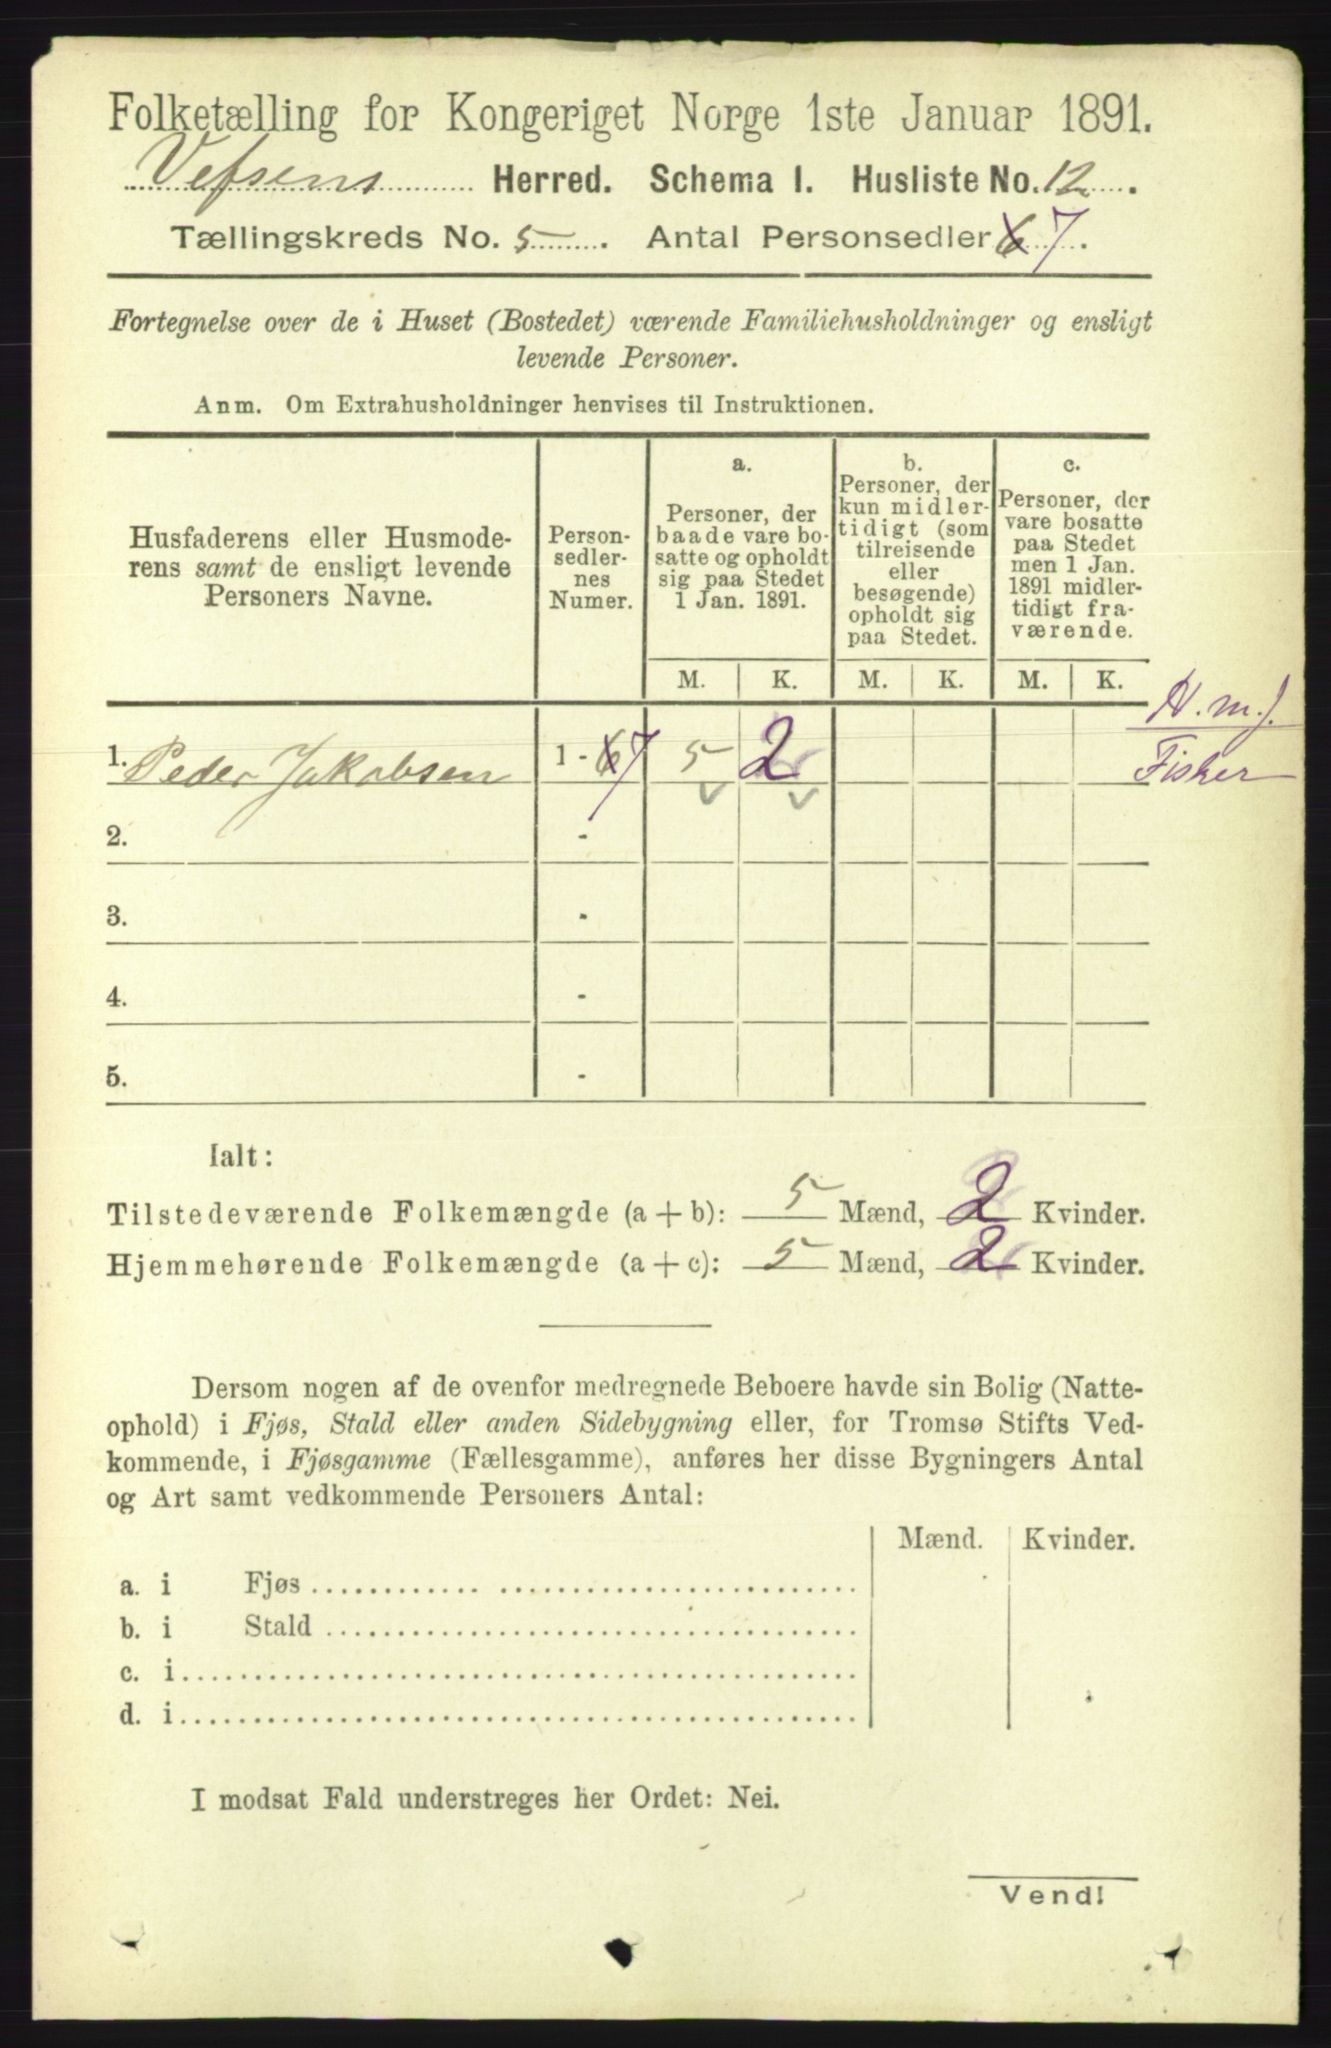 Folketælling for Kongeriget Norge 1ste Januar 1891.
Vefsens Herred. Schema I. Husliste No. 12.
Tællingskreds No. 5. Antal Personsedler 6 7.
Fortegnelse over de i Huset (Bostedet) værende Familiehusholdninger og ensligt
levende Personer.
Anm. Om Extrahusholdninger henvises til Instruktionen.
Husfaderens eller Husmode-
rens samt de ensligt levende
Personers Navne.
Person-
sedler-
nes
Numer.
a.
Personer, der
baade vare bo-
satte og opholdt
sig paa Stedet
1 Jan. 1891.
b.
Personer, der
kun midler-
tidigt (som
tilreisende
eller
besøgende)
opholdt sig
paa Stedet.
c.
Personer, der
vare bosatte
paa Stedet
men 1 Jan.
1891 midler-
tidigt fra-
værende.
M. K. M. K. M. K.
H.m.J.
1. Peder Jakobsen 1 - 6 7 5 2 Fisker
2. -
3. -
4. -
5. -
Ialt:
Tilstedeværende Folkemængde (a + b): 5 Mænd, 2 Kvinder.
Hjemmehørende Folkemængde (a + c): 5 Mænd, 2 Kvinder.
Dersom nogen af de ovenfor medregnede Beboere havde sin Bolig (Natte-
ophold) i Fjøs, Stald eller anden Sidebygning eller, for Tromsø Stifts Ved-
kommende, i Fjøsgamme (Fællesgamme), anføres her disse Bygningers Antal
og Art samt vedkommende Personers Antal:
Mænd. Kvinder.
a. i Fjøs
b. i Stald
c. i
d. i
I modsat Fald understreges her Ordet: Nei.
Vend!